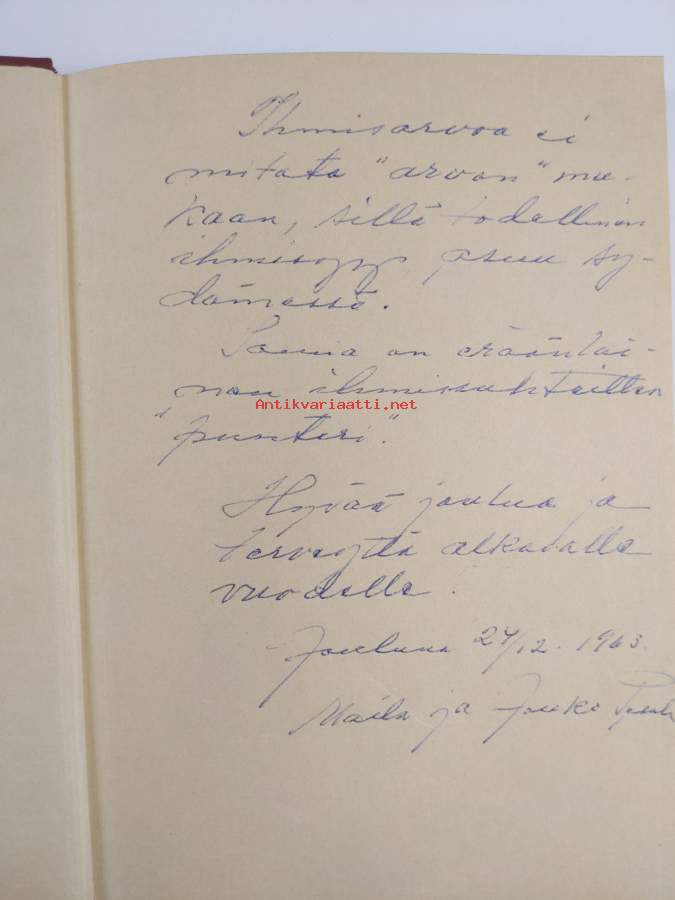 Ihmisarvoa ei
mitata "arvon" mu-
kaan, sillä todellinen
ihmisyys asuu sy-
dämessä.
Sauna on eräänlai-
nen ihmissuhteitten
Antikvariaatti.net
"puntari".
Hyvää joulua ja
terveyttä alkavalle
vuodelle.
Jouluna 24/12. 1963.
Maila ja Jouko